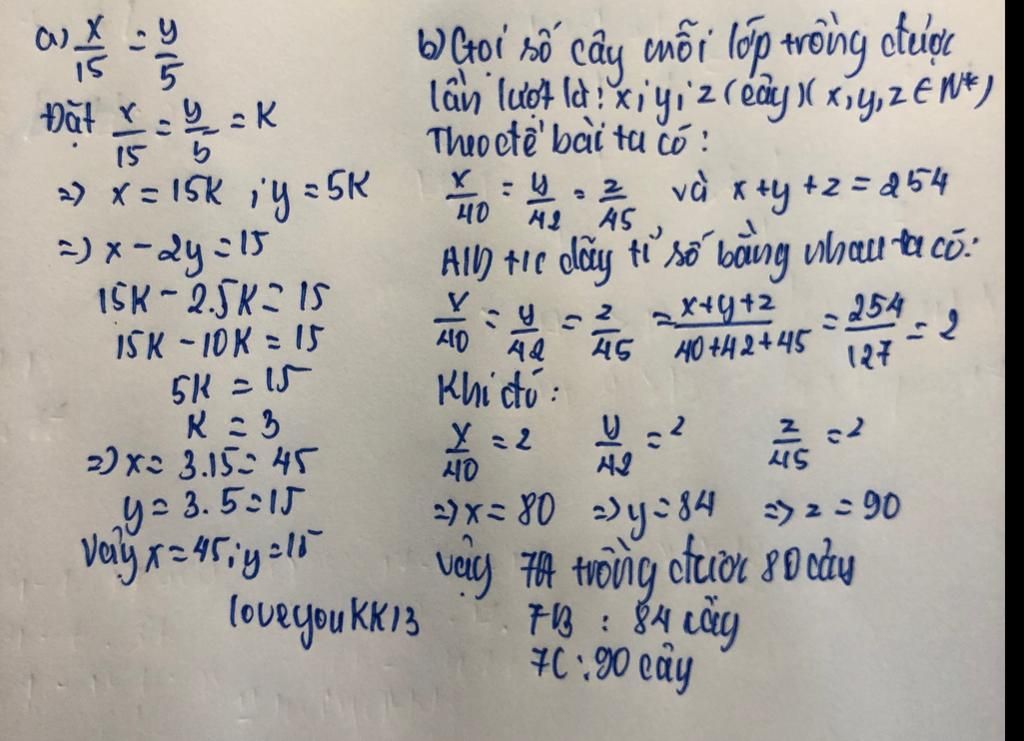 a) x/15 = y/5
Đặt x/15 = y/5 = K
=> x = 15K ; y = 5K
=> x - 2y = 15
15K - 2.5K = 15
15K - 10K = 15
5K = 15
K = 3
=> x = 3.15 = 45
y = 3.5 = 15
Vậy x = 45; y = 15
loveyouKK13
b) Gọi số cây mỗi lớp trồng được
lần lượt là: x; y; z (cây)( x, y, z ∈ N*)
Theo đề bài ta có:
x/40 = y/42 = z/45 và x + y + z = 254
AD t/c dãy tỉ số bằng nhau ta có:
x/40 = y/42 = z/45 = x+y+z/40+42+45 = 254/127 = 2
Khi đó:
x/40 = 2 y/42 = 2 z/45 = 2
=> x = 80 => y = 84 => z = 90
Vậy 7A trồng được 80 cây
7B : 84 cây
7C : 90 cây